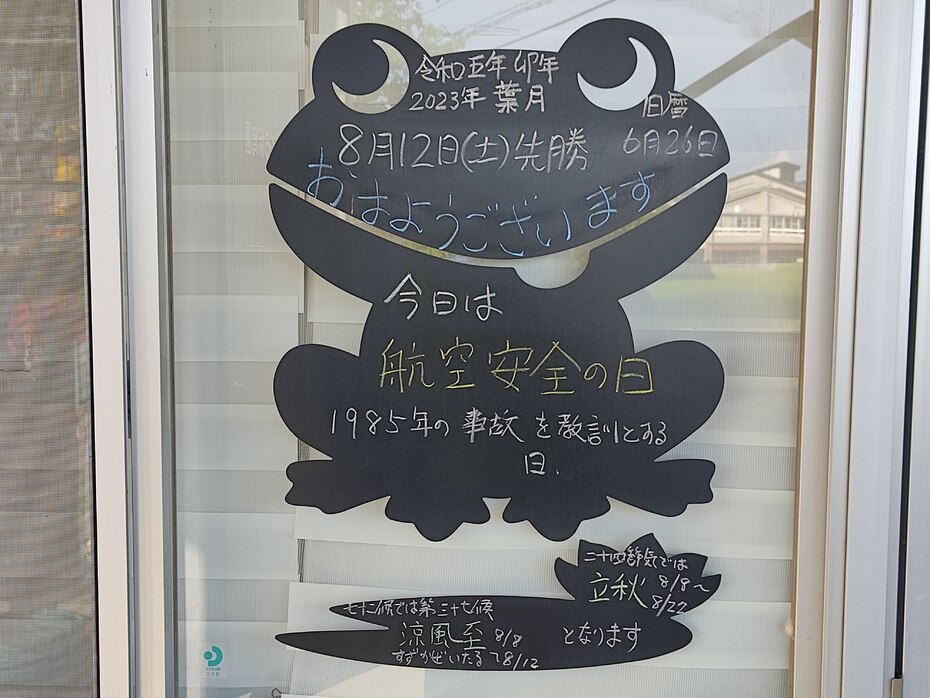 令和五年卯年
2023年 葉月
旧暦
6月26日
8月12日(土)先勝
おはようございます
今日は
航空安全の日
1985年の事故を教訓とする
日.
二十四節気では
立秋 8/8〜
8/22
七十二候では第三十七候
涼風至 8/8
すずかぜいたる 〜8/12
となります